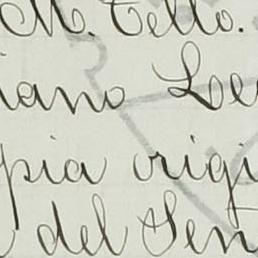 M. Tello.
iano Le
pia origi
del Sen